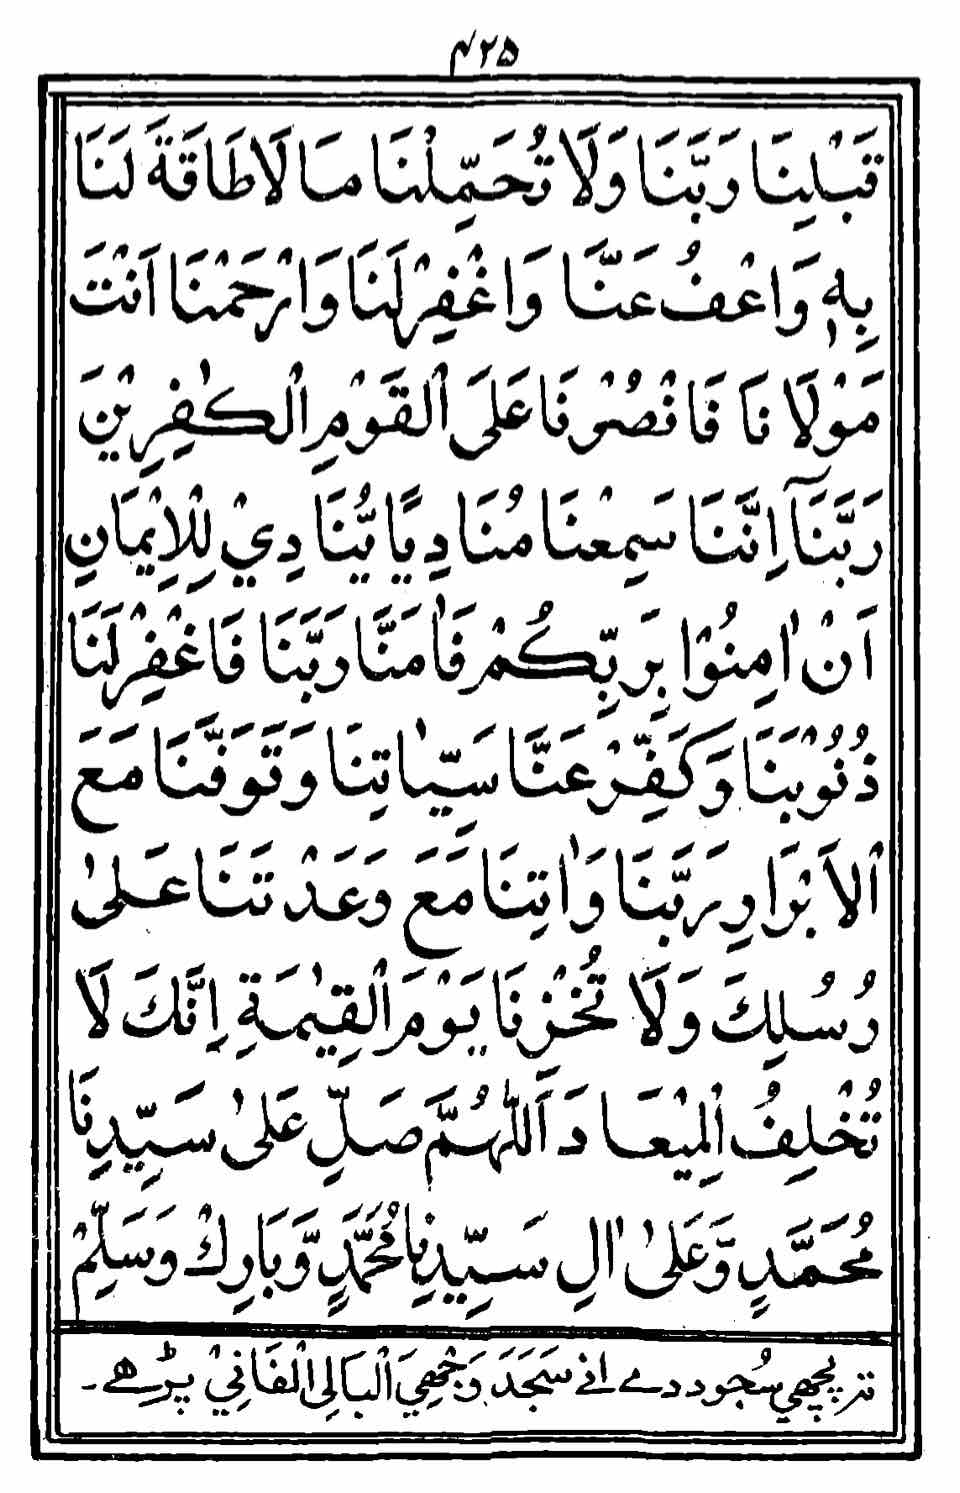 ۴۲۵
قَبْلِنَا رَبَّنَا وَلَا تُحَمِّلْنَا مَا لَا طَاقَةَ لَنَا
بِهٖ وَاعْفُ عَنَّا وَاغْفِرْ لَنَا وَارْحَمْنَا اَنْتَ
مَوْلَانَا فَانْصُرْنَا عَلَى الْقَوْمِ الْكٰفِرِيْنَ
رَبَّنَآ اِنَّنَا سَمِعْنَا مُنَادِيًا يُّنَادِيْ لِلْاِيْمَانِ
اَنْ اٰمِنُوْا بِرَبِّكُمْ فَاٰمَنَّا رَبَّنَا فَاغْفِرْ لَنَا
ذُنُوْبَنَا وَكَفِّرْ عَنَّا سَيِّاٰتِنَا وَتَوَفَّنَا مَعَ
الْاَبْرَارِ رَبَّنَا وَاٰتِنَا مَعَ وَعَدْتَنَا عَلٰى
رُسُلِكَ وَلَا تُخْزِنَا يَوْمَ الْقِيٰمَةِ اِنَّكَ لَا
تُخْلِفُ الْمِيْعَادَ اَللّٰهُمَّ صَلِّ عَلٰى سَيِّدِنَا
مُحَمَّدٍ وَّعَلٰى اٰلِ سَيِّدِنَا مُحَمَّدٍ وَّبَارِكْ وَسَلِّمْ
پچھي سُجود دمے انے سَجَدَ وَجْهِيَ الْبَالِى الْفَانِيْ پڑھے۔